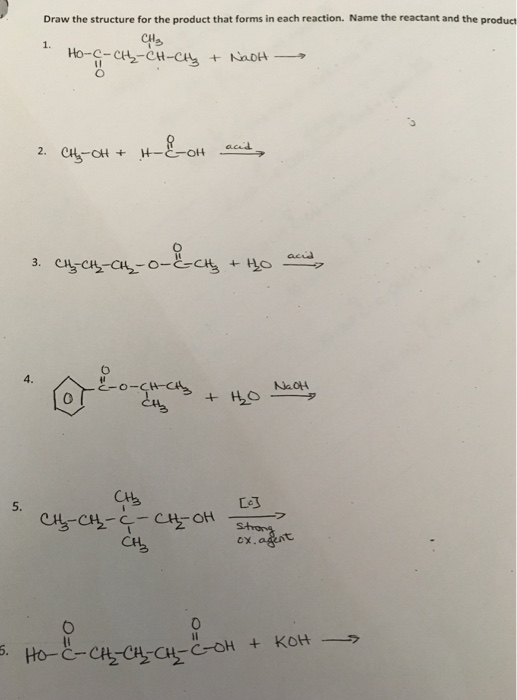 Draw the structure for the product that forms in each reaction. Name the reactant and the product
1. HO-C-CH₂-CH-CH₃ + NaOH →
CH₃
O
2. CH₃-OH + H-C-OH acid →
O
3. CH₃-CH₂-CH₂-O-C-CH₃ + H₂O acid →
O
4. C-O-CH-CH₃ + H₂O NaOH →
O
CH₃
5. CH₃-CH₂-C-CH₂-OH [O] →
CH₃
CH₃
strong
ox. agent
6. HO-C-CH₂-CH₂-CH₂-C-OH + KOH →
O O